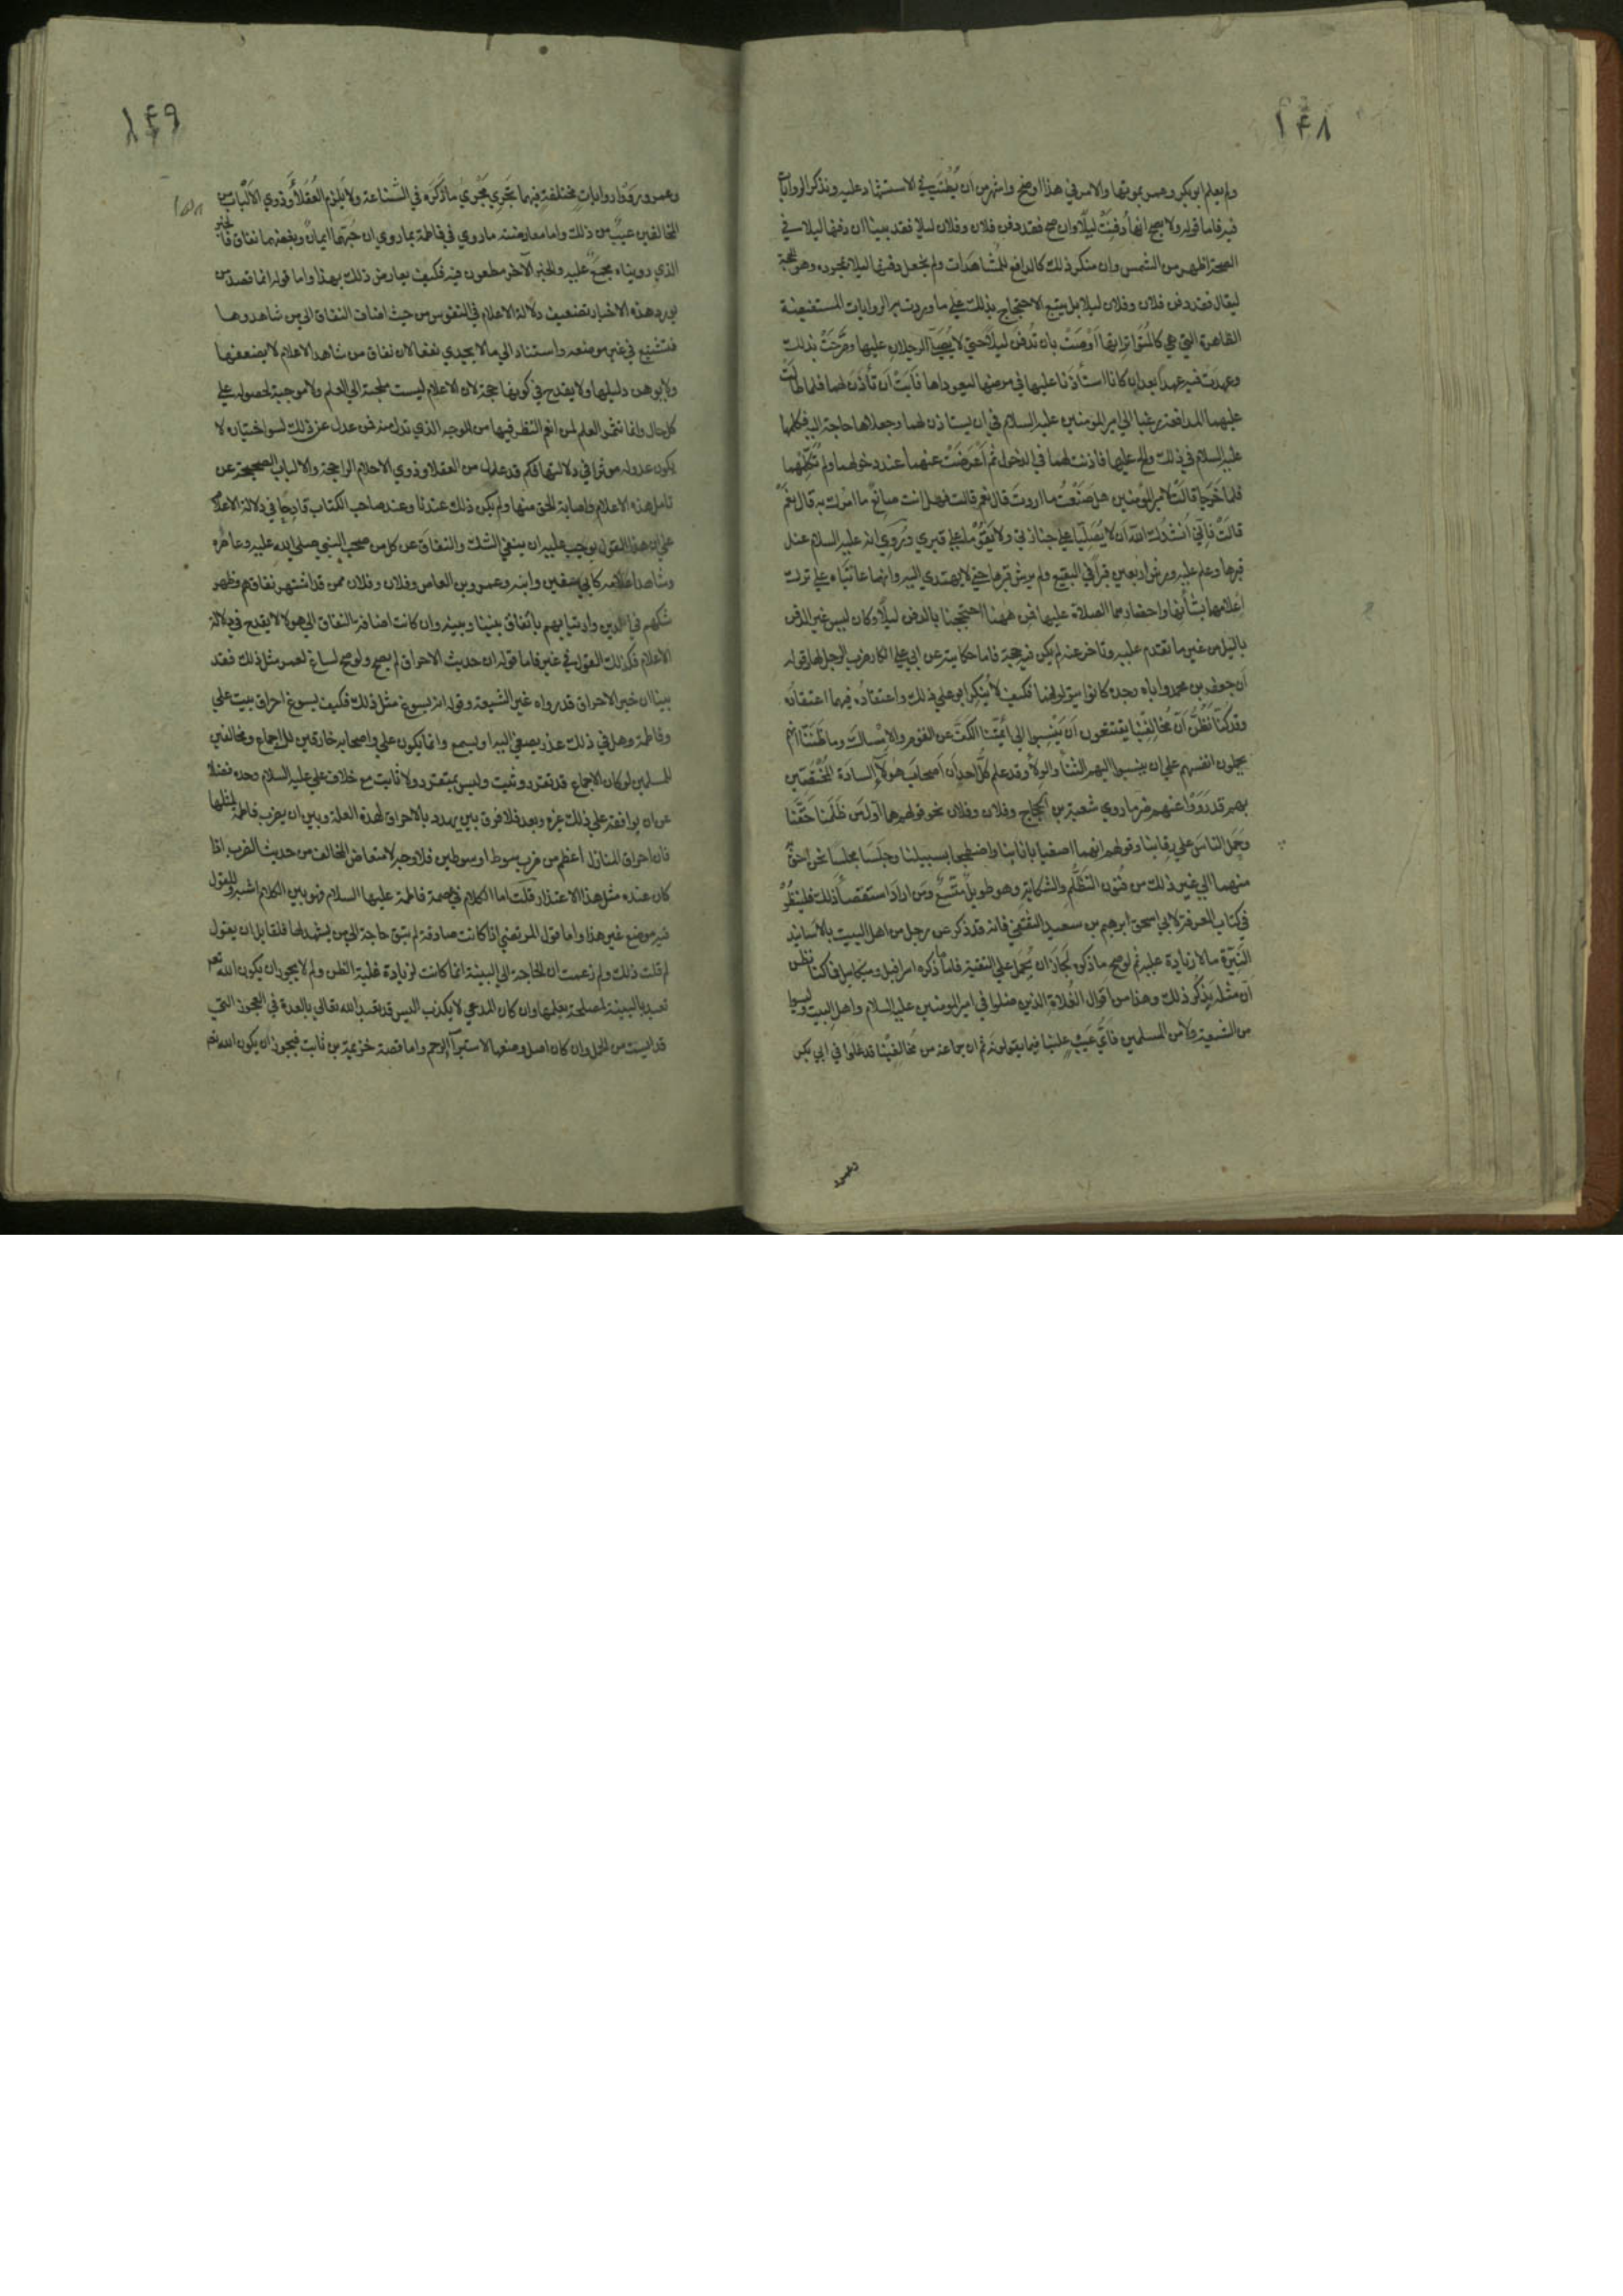 ١٤٨
ولم يعلم ابو بكر وعمر بموتها والامر في هذا اوضح واشهر من ان يُطْنَبَ في الاستشهاد عليه ونذكر الروايات
فيه فاما قوله ولا يصح انها دُفِنَتْ ليلًا وان صح فقد دفن فلان وفلان ليلا فقد بينا ان دفنها ليلا في
الصحة اظهر من الشمس وان منكر ذلك كالدافع للمُشاهَدات ولم نجعل دفنها ليلا بمجرده هو الحجة
ليقال فقد دفن فلان وفلان ليلا بل يتبع الاحتجاج بذلك على ما وردت به الروايات المستفيضة
الظاهرة التي هي كالمتواتر انها اَوْصَتْ بان تُدفنَ ليلًا حتى لا يُصَلِّيَ الرجلان عليها وصَرَّحَتْ بذلك
وعهدت فيه عهدا بعد ان كانا استأذَنا عليها في مرضها ليعوداها فَاَبَتْ اَن تأذَنَ لهما فلما طالَتْ
عليهما المدافعة رغبا الى امير المؤمنين عليه السلام في ان يستاذن لهما وجعلاها حاجة اليه فكلمها
عليه السلام في ذلك والح عليها فاذنت لهما في الدخول ثم اَعْرَضَتْ عنهما عند دخولهما ولم تُكَلِّمْهما
فلما خَرَجا قالَتْ لامير المؤمنين هل صَنَعْتُ ما اردتَ قال نعم قالت فهل انت صانعٌ ما امرك به قال نعم
قالت فانّي اُنْشدك الله ان لا يُصَلِّيا على جنازتي ولا يَقُوما على قبري ورُوِي انه عليه السلام عند
قبرها وعلم عليه ورش اربعين قبرًا في البقيع ولم يرش قبرها حتى لا يهتدي اليه وانهما عاتباه على ترك
اعلامهما بشأنها واحضارهما الصلاة عليها فمن ههنا احتججنا بالدفن ليلًا ولو كان ليس غير الدفن
بالليل من غير ما تقدم عليه وتاخر عنه لم يكن فيه حجة فاما حكايته عن ابي علي انكار ضرب الرجل لها وقوله
ان جعفر بن محمد واباه وجده كانوا يتولونهما فكيف لا يُنكِر ابو علي ذلك واعتقادُه فيهما اعتقادُه
وقد كنّا نَظُنُّ اَنّ مُخالِفِينا يقتنعون اَن يَنْسِبوا الى اَئمّتنا الكَفَّ عن القوم والاِمساكَ وما ظَنَنّا انهم
يحملون انفسهم على ان ينسبوا اليهم الثناءَ والولاءَ وقد علم كلُّ احدٍ ان اصحابَ هؤلاءِ السادَة المُخْتَصّين
بهم قد رَوَوْا عنهم ضد ما روي شعبة بن الحجاج وفلان وفلان نحو قولهم هما اَولُ مَن ظَلَمنا حَقَّنا
وحَمَل الناسَ على رقابنا وقولهم انهما اصغيا باناينا واضطجعا بسبيلنا وجَلَسَا مجلسا نحن احقُّ
منهما الى غير ذلك من فُنون التَظَلُّم والشكايةِ وهو طويلٌ مُتَّسعٌ ومَن ارادَ استقصاءَ ذلك فلينظُرْ
في كتاب المعرفة لابي اسحق ابرهيم بن سعيد الثَقَفي فانه قد ذكر عن رجل من اهل البيت بالاسانيد
النَيِّرَة ما لا زيادة عليه ثم لو صح ما ذكره لجَازَ ان يُحمَل على التقية فاما ما ذكره اسرافيل وميكاييل فما كنا نظن
اَن مثله يَذكُر ذلك وهذا من اقوال الغُلاة الذين ضلوا في امير المؤمنين عليه السلام واهل البيت وليسوا
من الشيعة ولا من المسلمين فاَيُّ عَيبٍ علينا فيما يقولونه ثم ان جماعة من مُخالِفينا قد غَلَوا في ابي بكر
وعمر
١٤٩
وعمر ورَوَوْا روايات مختلفة فيهما تَجْرِي مَجْرى ما ذكَرَه في الشناعة ولا يَلزم العُقَلاءَ وذوي الاَلْبابِ من
المخالفين عيبٌ من ذلك واما معارضته ما روي في فاطمة بما روي ان حُبَّهما ايمانٌ وبغضهما نفاق فالخبر
الذي رويناه مجمَع عليه والخبر الآخر مطعون فيه فكيف يعارض ذلك بهذا واما قوله انما قصد من
يورد هذه الاخبار تضعيف دلالة الاعلام في النفوس من حيث اضاف النفاق الى من شاهدوها
فتشنيع في غير موضعه واستناد الى ما لا يجدي نفعا لان نفاق من شاهد الاعلام لا يضعفها
ولا يوهن دليلها ولا يقدح في كونها حجة لان الاعلام ليست ملجئة الى العلم ولا موجبة لحصوله على
كل حال وانما تثمر العلم لمن امعن النظر فيها من الوجه الذي تدل منه فمن عدل عن ذلك لسوء اختياره لا
يكون عدوله موثرا في دلالتها فكم قد عدل من العقلا وذوي الاحلام الراجحة والالباب الصحيحة عن
تامل هذه الاعلام واصابة الحق منها ولم يكن ذلك عندنا وعند صاحب الكتاب قادحًا في دلالة الاعلام
على ان هذا القول يوجب عليه ان ينفي الشك والنفاق عن كل من صحب النبي صلى الله عليه وعاصره
وشاهد اعلامه كابي سفين وابنه وعمرو بن العاص وفلان وفلان ممن قد اشتهر نفاقهم وظهر
شكهم في الدين وارتيابهم باتفاق بيننا وبينه وان كانت اضافة النفاق الى هولا لا يقدح في دلالة
الاعلام فكذلك القول في غيرهم فاما قوله ان حديث الاحراق لم يصح ولو صح لساغ لعمر مثل ذلك فقد
بينا ان خبر الاحراق قد رواه غير الشيعة وقوله انه يسوغ مثل ذلك فكيف يسوغ احراق بيت علي
وفاطمة وهل في ذلك عذر يصغي اليه او يسمع وانما يكون علي واصحابه خارقين للاجماع ومخالفين
للمسلمين لو كان الاجماع قد تقرر وثبت وليس بمتقرر ولا ثابت مع خلاف علي عليه السلام وحده فضلا
عن ان يوافقه على ذلك غيره وبعد فلا فرق بين يهدد بالاحراق لهذه العلة وبين ان يضرب فاطمة لمثلها
فان احراق المنازل اعظم من ضرب سوط او سوطين فلا وجه لامتعاض المخالف من حديث الضرب اذا
كان عنده مثل هذا الاعتذار قلت اما الكلام في عصمة فاطمة عليها السلام فهو بين الكلام اشبه وللقول
فيه موضع غير هذا واما قول المرتضى اذا كانت صادقة لم يبق حاجة الى من يشهد لها فلقايل ان يقول
لم قلت ذلك ولم زعمت ان الحاجة الى البينة انما كانت لزيادة غلبة الظن ولم لا يجوز ان يكون الله تعم
تعبد بالبينة لمصلحة يعلمها وان كان المدعي لا يكذب اليس قد تعبد الله تعالى بالعدة في العجوز التي
قد ايست من الحمل وان كان اصل وضعها لاستبرآ الرحم واما قصة خزيمة بن ثابت فيجوز ان يكون الله تعم